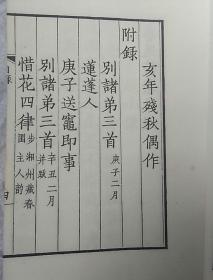 亥年殘秋偶作
附録
別諸弟三首 庚子二月
蓮蓬人
庚子送竈即事
別諸弟三首 辛丑二月并跋
惜花四律 步湘州藏春園主人韵
目録
四